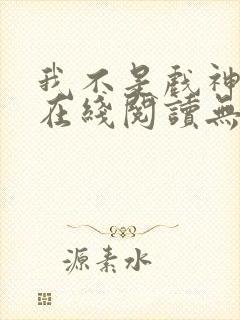 我不是戏神
在綫閱讀無
源素水